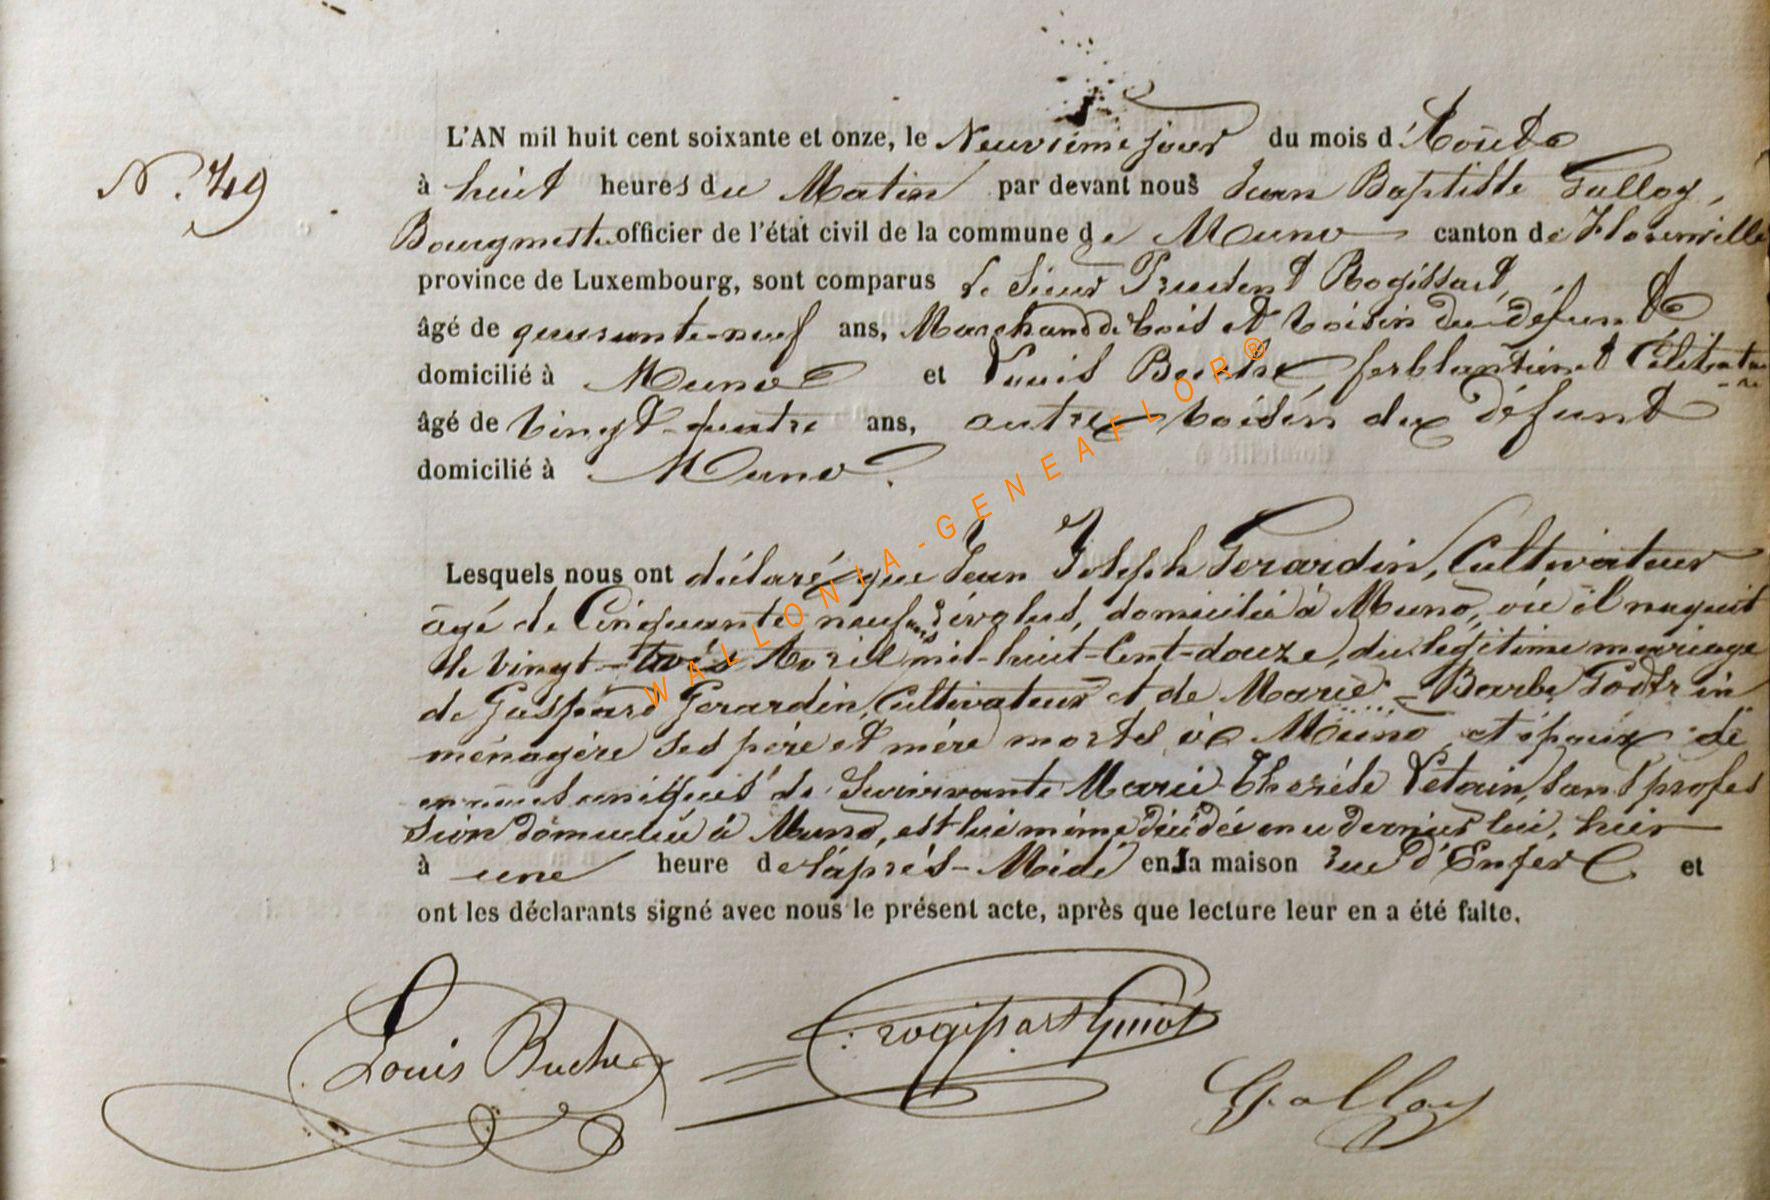 N°. 49
L'AN mil huit cent soixante et onze, le Neuvième jour du mois d'Août
à huit heures du Matin par devant nous Jean Baptiste Galloy,
Bourgmestre officier de l'état civil de la commune de Muno canton de Florenville
province de Luxembourg, sont comparus le Sieur Prudent Rogissart,
âgé de quarante-neuf ans, Marchand de bois et voisin du défunt
domicilié à Muno et Louis Buche, ferblantier et Célibataire
âgé de vingt-quatre ans, autre voisin du défunt
domicilié à Muno.
Lesquels nous ont déclaré que Jean Joseph Gerardin, Cultivateur
âgé de Cinquante neuf ans révolus, domicilié à Muno, où il naquit
le vingt-trois Avril mil-huit-Cent-douze, du légitime mariage
de Gaspard Gerardin, Cultivateur et de Marie-Barbe
ménagère ses père et mère morts à Muno et époux de
en noces de Survivante Marie Thérèse Petain, sans profes
sion domiciliée à Muno, est lui même décédé en ce dernier lieu, hier
à une heure de l'après-Midi en la maison rue d'Enfer et
ont les déclarants signé avec nous le présent acte, après que lecture leur en a été faite.
Louis Buche rogissart Guiot
Galloy
WALLONIA-GENEAFLOR®